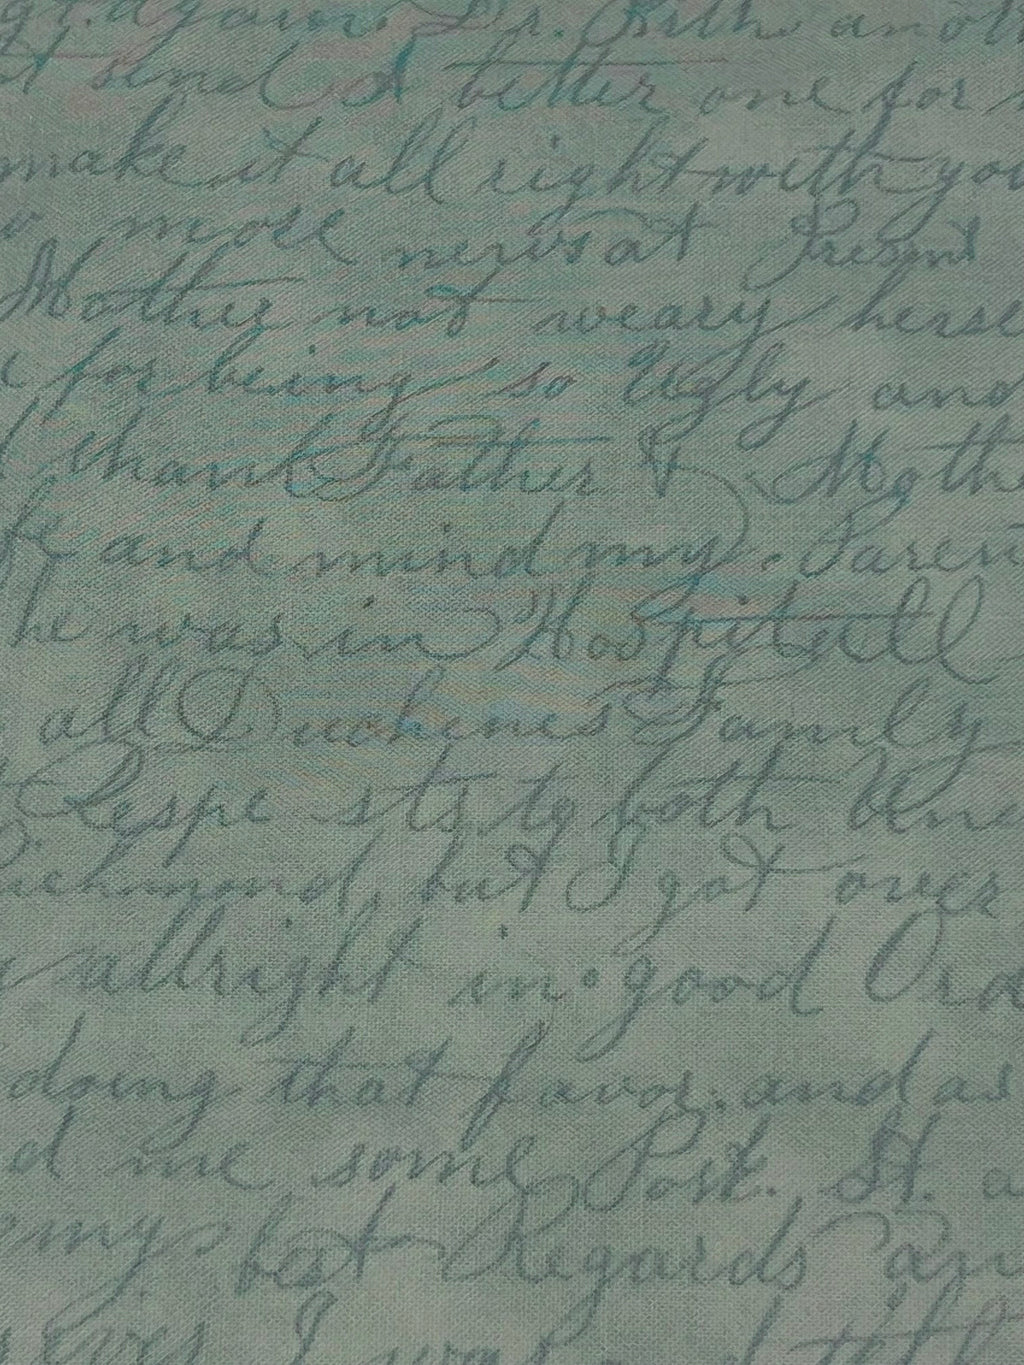 again. Dr.
send I better one for
make it all right with you
more news at Present
Mother not weary herse
for being so Ugly and
thank Father & Mothe
and mind my. Paren
he was in Hospitall
all Duchenes Family
Respe sts to both
ichmond, but I got over
allright in good Ord
doing that favor. and as
d me some Post. St. a
my best Regards
I was